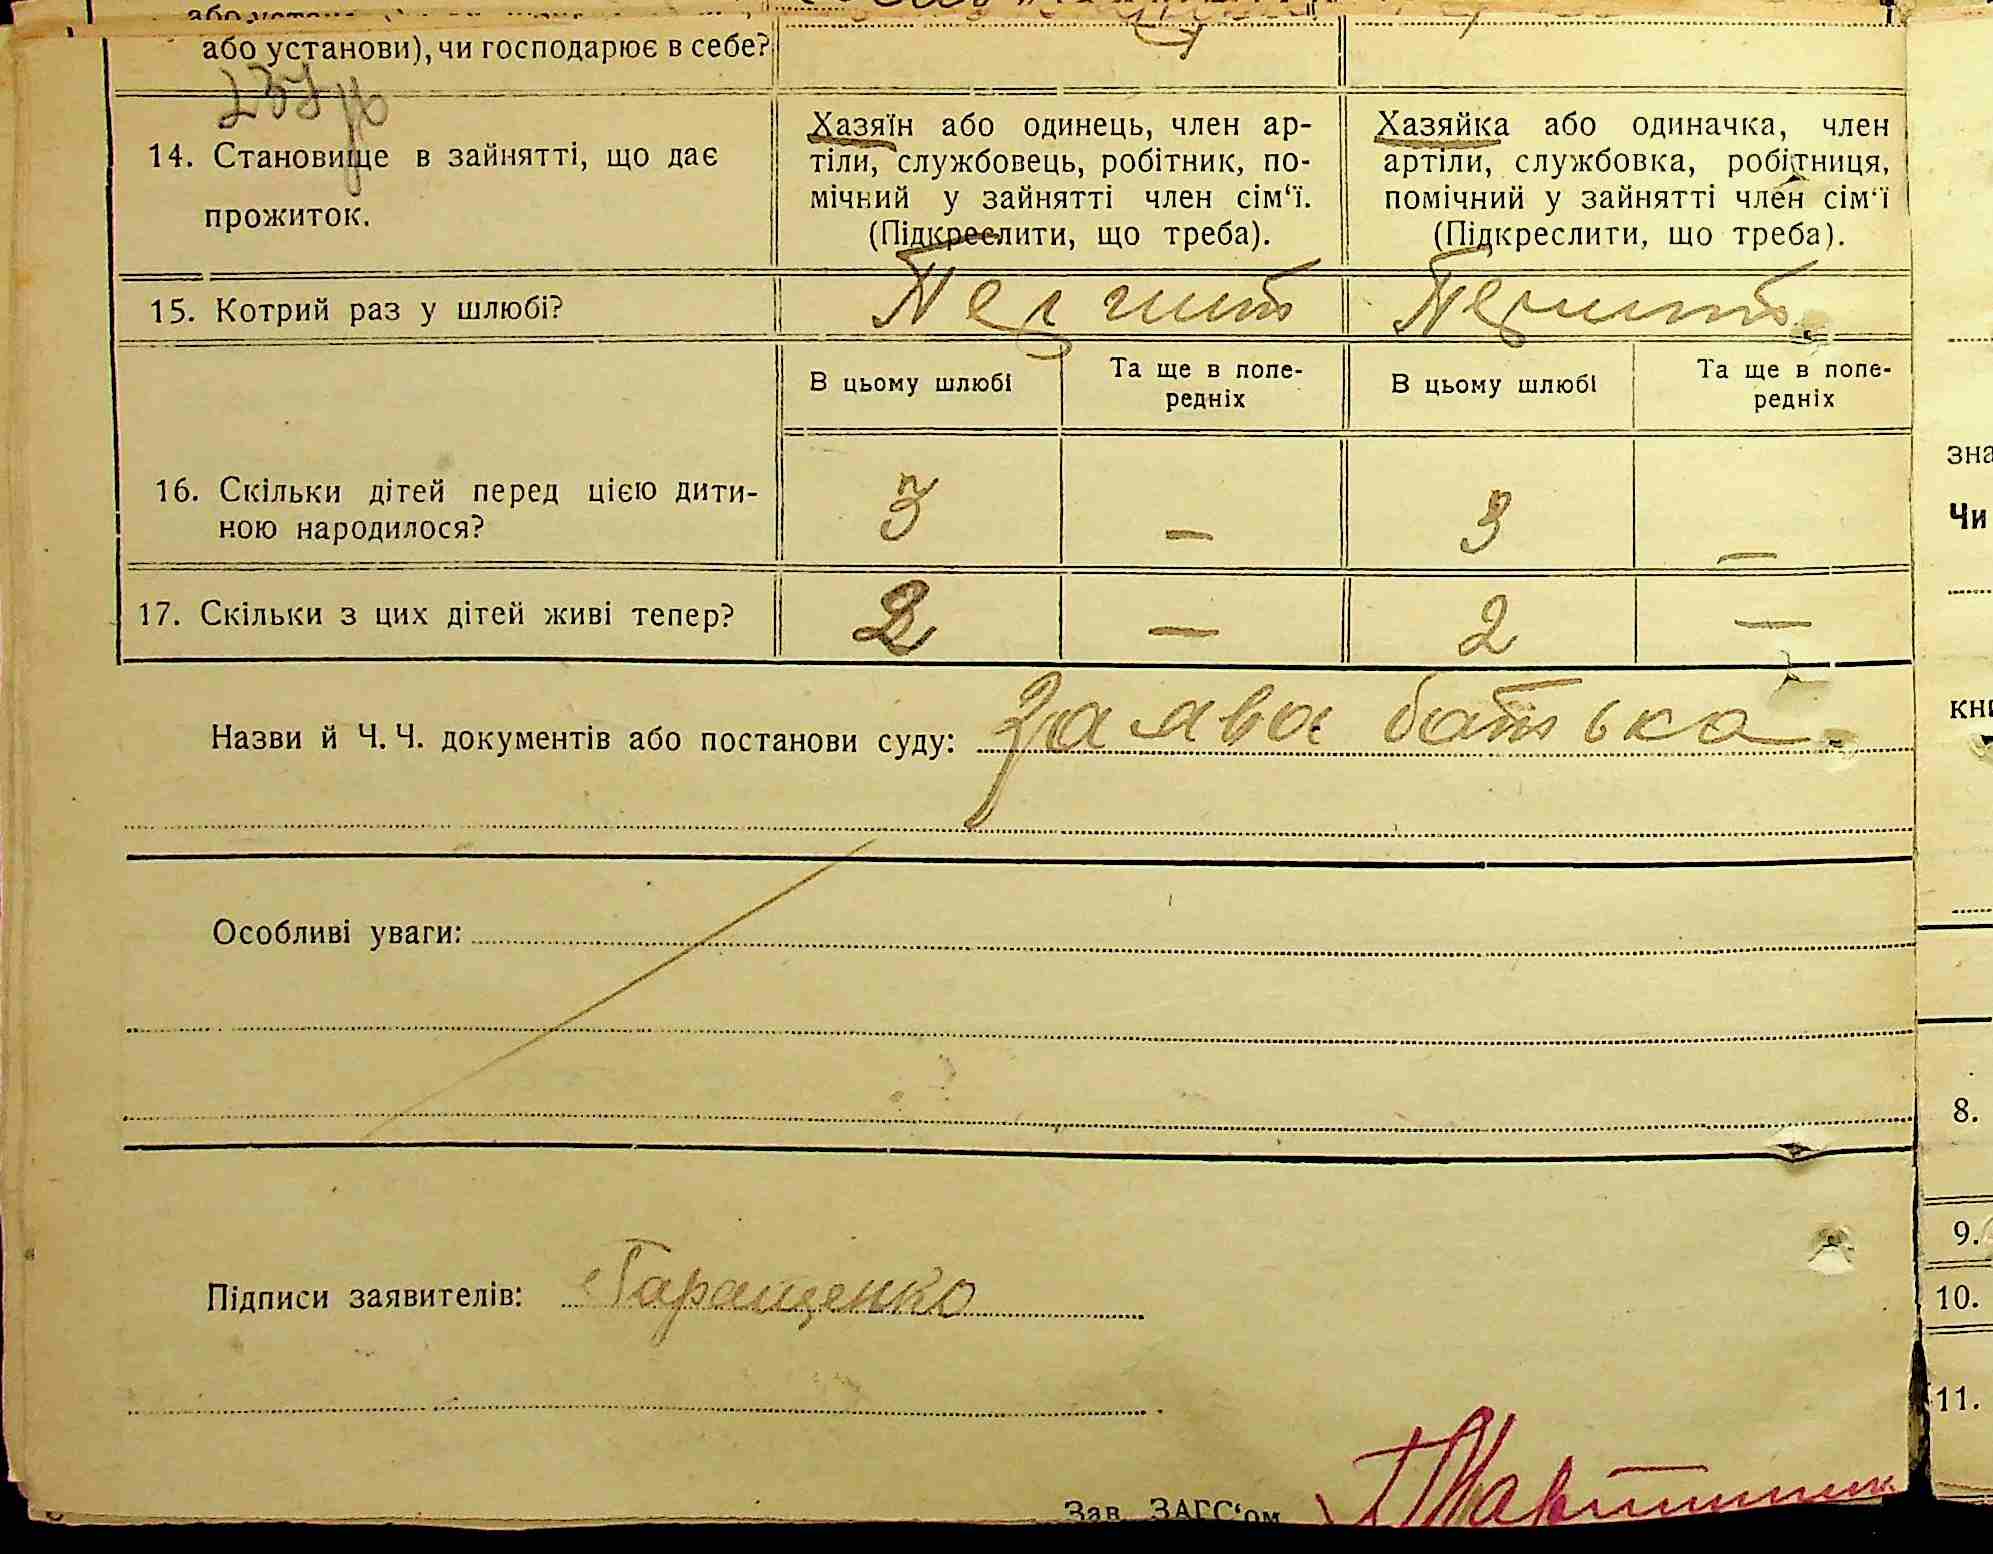 або установи), чи господарює в себе?
14. Становище в зайнятті, що дає
прожиток.
Хазяїн або одинець, член ар-
тіли, службовець, робітник, по-
мічний у зайнятті член сім‘ї.
(Підкреслити, що треба).
Хазяйка або одиначка, член
артіли, службовка, робітниця,
помічний у зайнятті член сім‘ї
(Підкреслити, що треба).
15. Котрий раз у шлюбі?
Перший
Перший
В цьому шлюбі
Та ще в попе-
редніх
В цьому шлюбі
Та ще в попе-
редніх
16. Скільки дітей перед цією дити-
ною народилося?
3
—
3
—
17. Скільки з цих дітей живі тепер?
2
—
2
—
Назви й Ч. Ч. документів або постанови суду: Заява батька
Особливі уваги:
Підписи заявителів: Гаращенко
Зав. ЗАГС‘ом
зна
Чи
кни
8.
9.
10.
11.